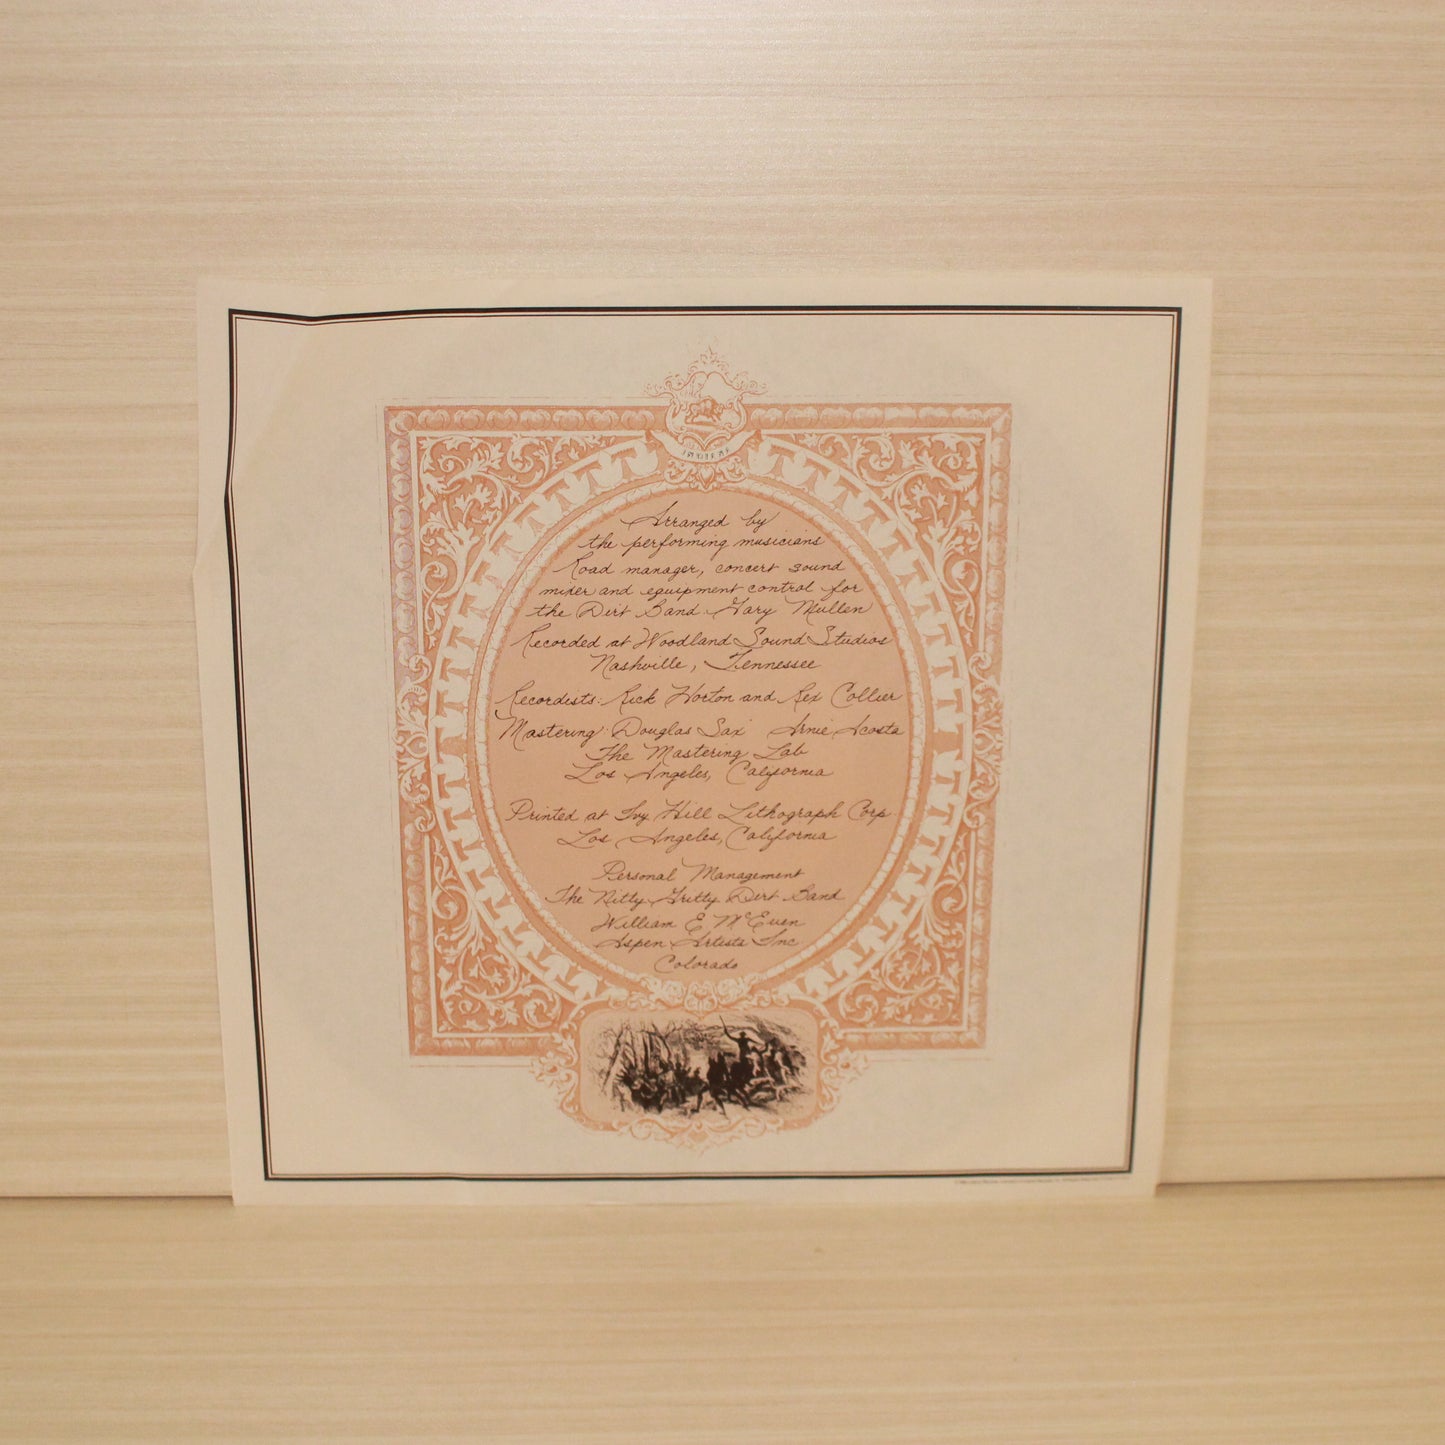 Arranged by
the performing musicians
Road manager, concert sound
mixer and equipment control for
the Dirt Band: Gary Mullen
Recorded at Woodland Sound Studios
Nashville, Tennessee
Recordists: Rick Horton and Rex Collier
Mastering: Douglas Sax Arnie Acosta
The Mastering Lab
Los Angeles, California
Printed at Ivy Hill Lithograph Corp.
Los Angeles, California
Personal Management
The Nitty Gritty Dirt Band
William E McEuen
Aspen Artists Inc
Colorado